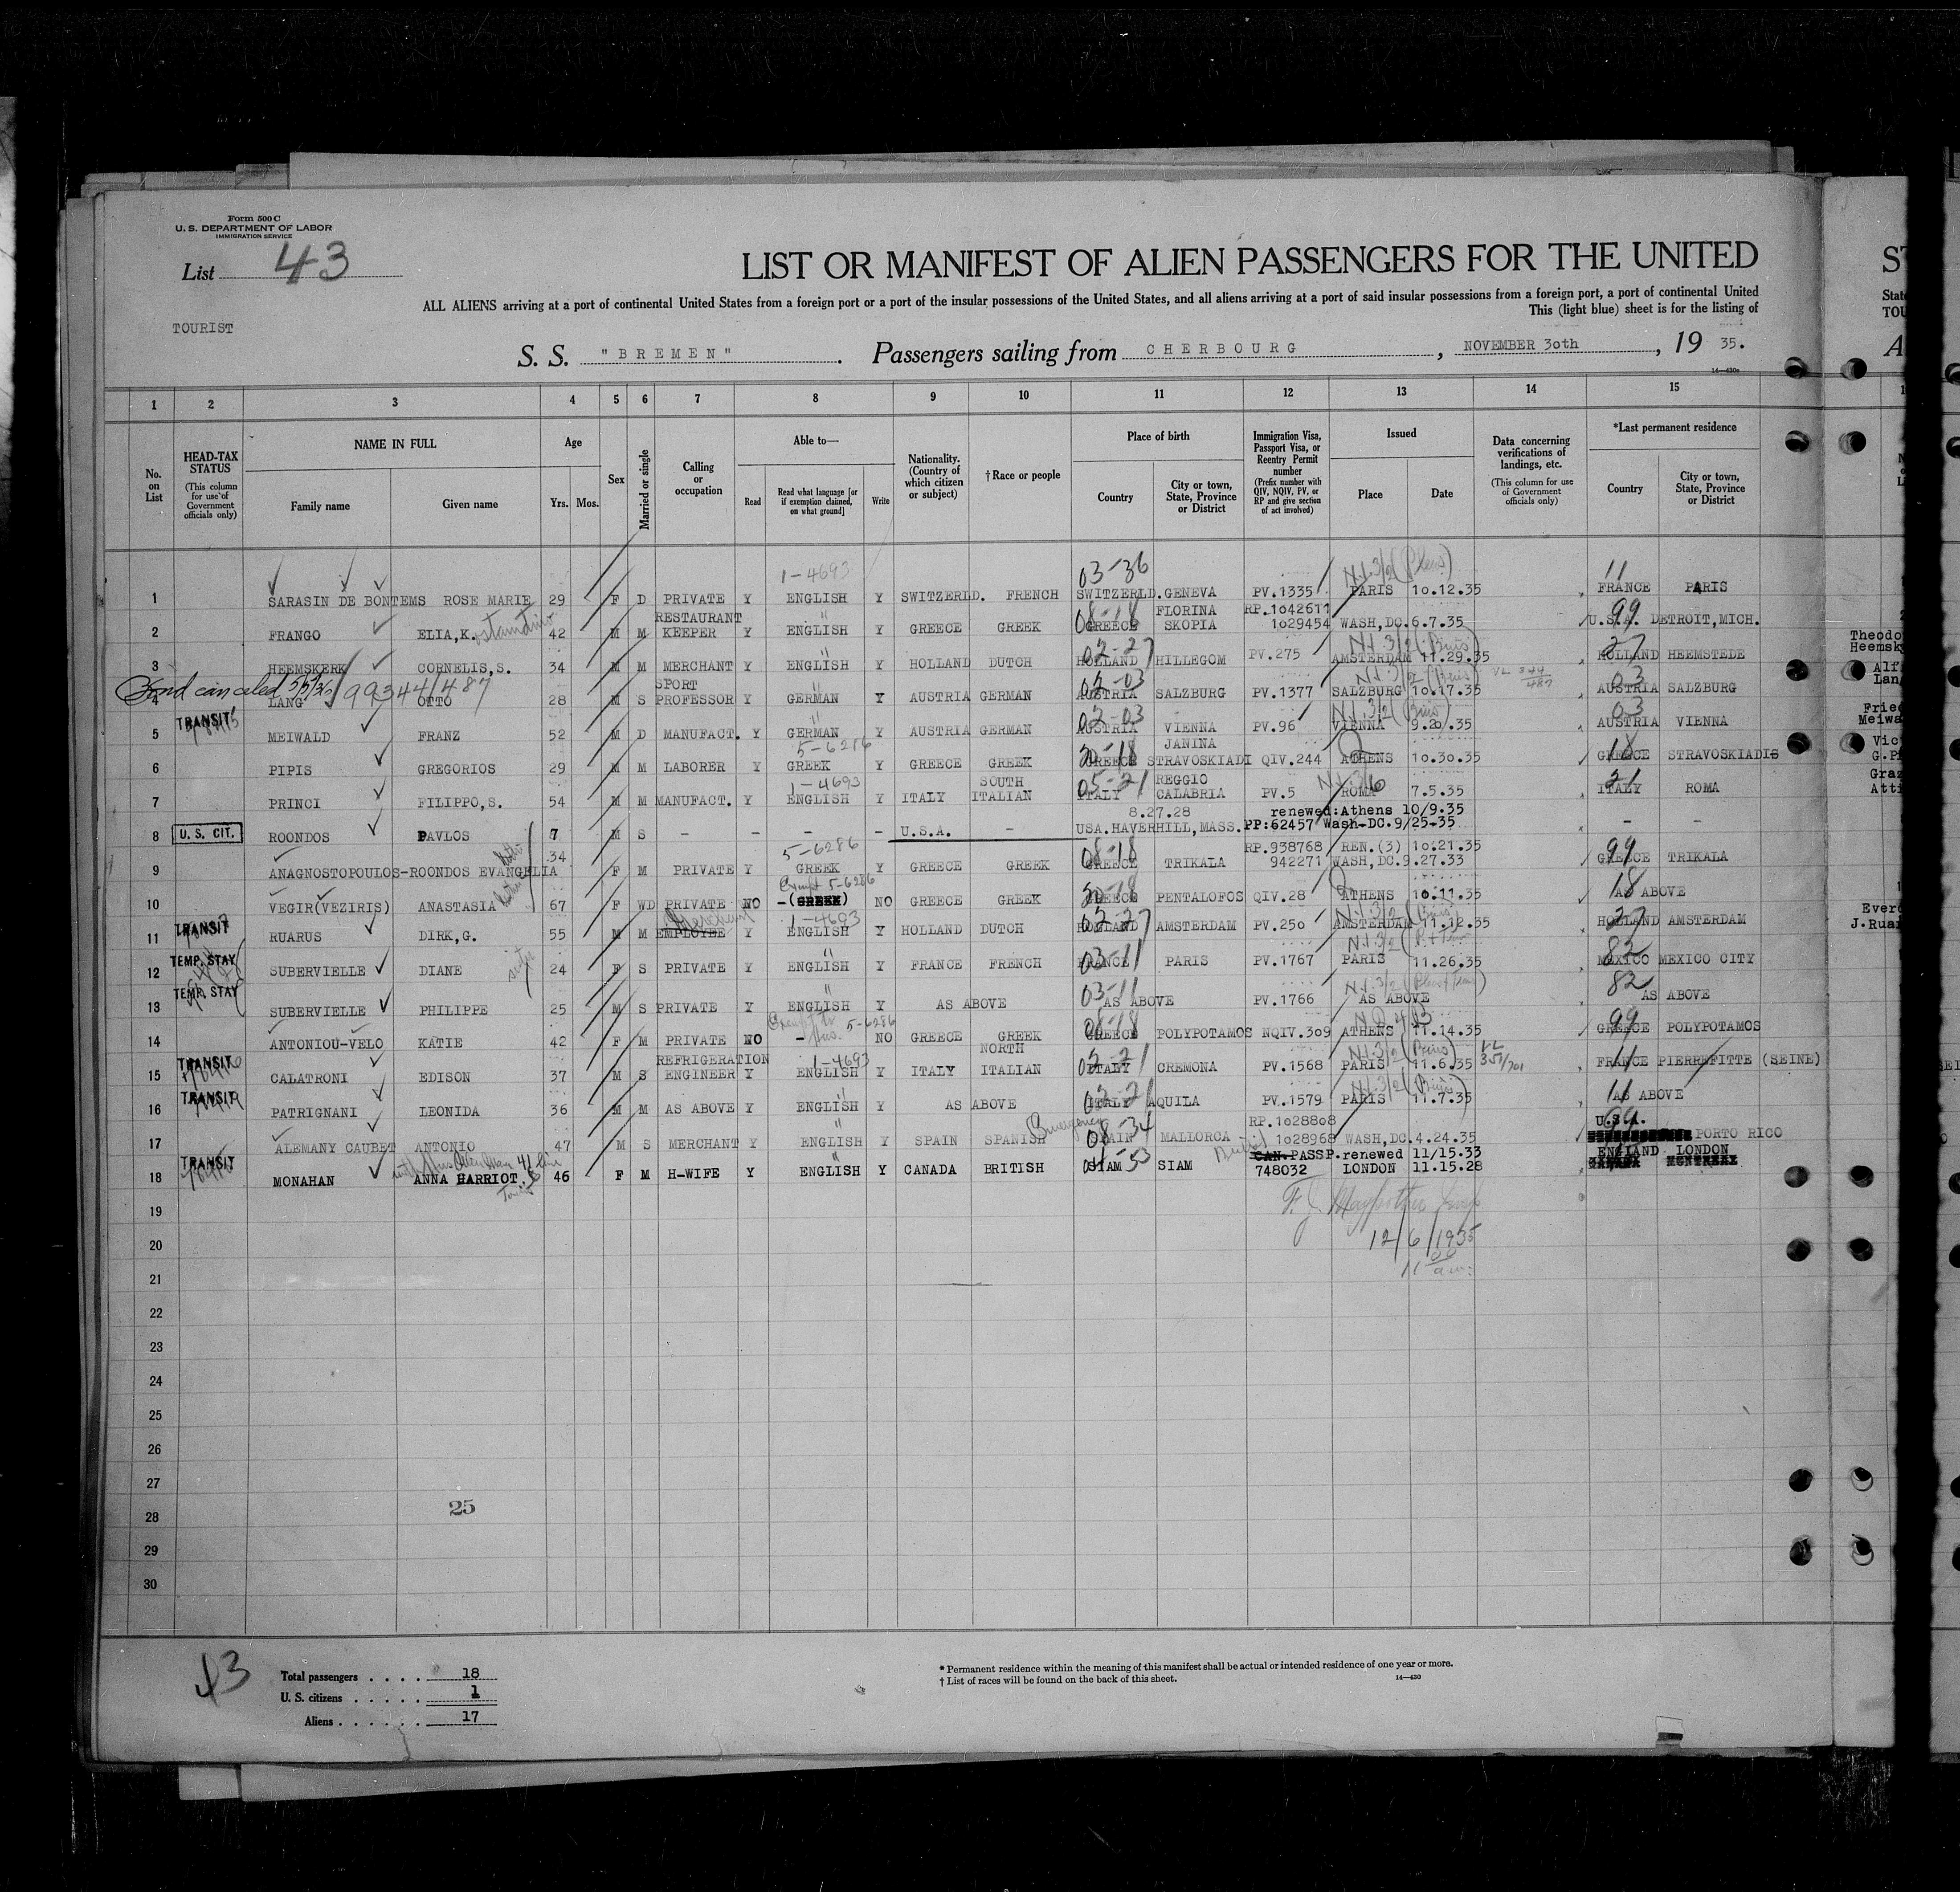 Form 500 C
U. S. DEPARTMENT OF LABOR
IMMIGRATION SERVICE
List 43
LIST OR MANIFEST OF ALIEN PASSENGERS FOR THE UNITED
ALL ALIENS arriving at a port of continental United States from a foreign port or a port of the insular possessions of the United States, and all aliens arriving at a port of said insular possessions from a foreign port, a port of continental United
This (light blue) sheet is for the listing of
TOURIST
S. S. "BREMEN". Passengers sailing from CHERBOURG, NOVEMBER 3oth, 19 35.
14—430c
1 2 3 4 5 6 7 8 9 10 11 12 13 14 15
No. on List
HEAD-TAX STATUS (This column for use of Government officials only)
NAME IN FULL
Family name Given name
Age
Yrs. Mos.
Sex
Married or single
Calling or occupation
Able to—
Read Read what language [or if exemption claimed, on what ground] Write
Nationality. (Country of which citizen or subject)
†Race or people
Place of birth
Country City or town, State, Province or District
Immigration Visa, Passport Visa, or Reentry Permit number (Prefix number with QIV, NQIV, PV, or RP and give section of act involved)
Issued
Place Date
Data concerning verifications of landings, etc. (This column for use of Government officials only)
*Last permanent residence
Country City or town, State, Province or District
1-4693 03-36 N.I.3/2 11
1 SARASIN DE BONTEMS ROSE MARIE 29 F D PRIVATE Y ENGLISH Y SWITZERLD. FRENCH SWITZERLD. GENEVA PV.1335 PARIS 10.12.35 FRANCE PARIS
RESTAURANT " 08-18 FLORINA RP.1042611 99
2 FRANGO ELIA,K.ostantino 42 M M KEEPER Y ENGLISH Y GREECE GREEK GREECE SKOPIA 1029454 WASH,DC.6.7.35 U.S.A. DETROIT,MICH.
" 02-27 N.I.3/2 27
3 HEEMSKERK CORNELIS,S. 34 M M MERCHANT Y ENGLISH Y HOLLAND DUTCH HOLLAND HILLEGOM PV.275 AMSTERDAM 11.29.35 HOLLAND HEEMSTEDE
Bond canceled 99344/487 SPORT " 02-03 N.I.3/2 VL 344/487 03
4 LANG OTTO 28 M S PROFESSOR Y GERMAN Y AUSTRIA GERMAN AUSTRIA SALZBURG PV.1377 SALZBURG 10.17.35 AUSTRIA SALZBURG
TRANSIT " 02-03 N.I.3/2 03
5 MEIWALD FRANZ 52 M D MANUFACT. Y GERMAN Y AUSTRIA GERMAN AUSTRIA VIENNA PV.96 VIENNA 9.20.35 AUSTRIA VIENNA
5-6286 20-18 JANINA 18
6 PIPIS GREGORIOS 29 M M LABORER Y GREEK Y GREECE GREEK GREECE STRAVOSKIADI QIV.244 ATHENS 10.30.35 GREECE STRAVOSKIADIS
1-4693 SOUTH 05-21 REGGIO 21
7 PRINCI FILIPPO,S. 54 M M MANUFACT. Y ENGLISH Y ITALY ITALIAN ITALY CALABRIA PV.5 ROMA 7.5.35 ITALY ROMA
8.27.28 renewed:Athens 10/9.35
8 U. S. CIT. ROONDOS PAVLOS 7 M S - - - - U.S.A. - USA.HAVERHILL,MASS. PP:62457 Wash-DC.9/25-35 - -
5-6286 08-18 RP.938768 REN.(3) 10.21.35 99
9 ANAGNOSTOPOULOS-ROONDOS EVANGELIA 34 F M PRIVATE Y GREEK Y GREECE GREEK GREECE TRIKALA 942271 WASH,DC.9.27.33 GREECE TRIKALA
Exempt 5-6286 20-18 18
10 VEGIR(VEZIRIS) ANASTASIA 67 F WD PRIVATE NO -(GREEK) NO GREECE GREEK GREECE PENTALOFOS QIV.28 ATHENS 10.11.35 AS ABOVE
TRANSIT Merchant 1-4693 02-27 N.I.3/2 27
11 RUARUS DIRK,G. 55 M M EMPLOYEE Y ENGLISH Y HOLLAND DUTCH HOLLAND AMSTERDAM PV.250 AMSTERDAM 11.12.35 HOLLAND AMSTERDAM
TEMP. STAY sister " 03-11 N.I.3/2 82
12 SUBERVIELLE DIANE 24 F S PRIVATE Y ENGLISH Y FRANCE FRENCH FRANCE PARIS PV.1767 PARIS 11.26.35 MEXICO MEXICO CITY
TEMP. STAY " 03-11 N.I.3/2 82
13 SUBERVIELLE PHILIPPE 25 M S PRIVATE Y ENGLISH Y AS ABOVE AS ABOVE PV.1766 AS ABOVE AS ABOVE
5-6286 08-18 99
14 ANTONIOU-VELO KATIE 42 F M PRIVATE NO - NO GREECE GREEK GREECE POLYPOTAMOS NQIV.309 ATHENS 11.14.35 GREECE POLYPOTAMOS
TRANSIT REFRIGERATION 1-4693 NORTH 02-21 N.I.3/2 VL 11
15 CALATRONI EDISON 37 M S ENGINEER Y ENGLISH Y ITALY ITALIAN ITALY CREMONA PV.1568 PARIS 11.6.35 FRANCE PIERREFITTE (SEINE)
TRANSIT " 02-21 N.I.3/2 11
16 PATRIGNANI LEONIDA 36 M M AS ABOVE Y ENGLISH Y AS ABOVE ITALY AQUILA PV.1579 PARIS 11.7.35 AS ABOVE
" 08-34 RP.1028808 U.S.A.
17 ALEMANY CAUBET ANTONIO 47 M S MERCHANT Y ENGLISH Y SPAIN SPANISH SPAIN MALLORCA 1028968 WASH,DC.4.24.35 PORTO RICO
TRANSIT " CAN.PASSP.renewed 11/15.33 ENGLAND LONDON
18 MONAHAN ANNA HARRIOT. 46 F M H-WIFE Y ENGLISH Y CANADA BRITISH SIAM SIAM 748032 LONDON 11.15.28
19
12/6/1935
20
21
22
23
24
25
26
27
25
28
29
30
43
Total passengers . . . . 18
U. S. citizens . . . . . 1
Aliens . . . . . . 17
* Permanent residence within the meaning of this manifest shall be actual or intended residence of one year or more.
† List of races will be found on the back of this sheet.
14—430